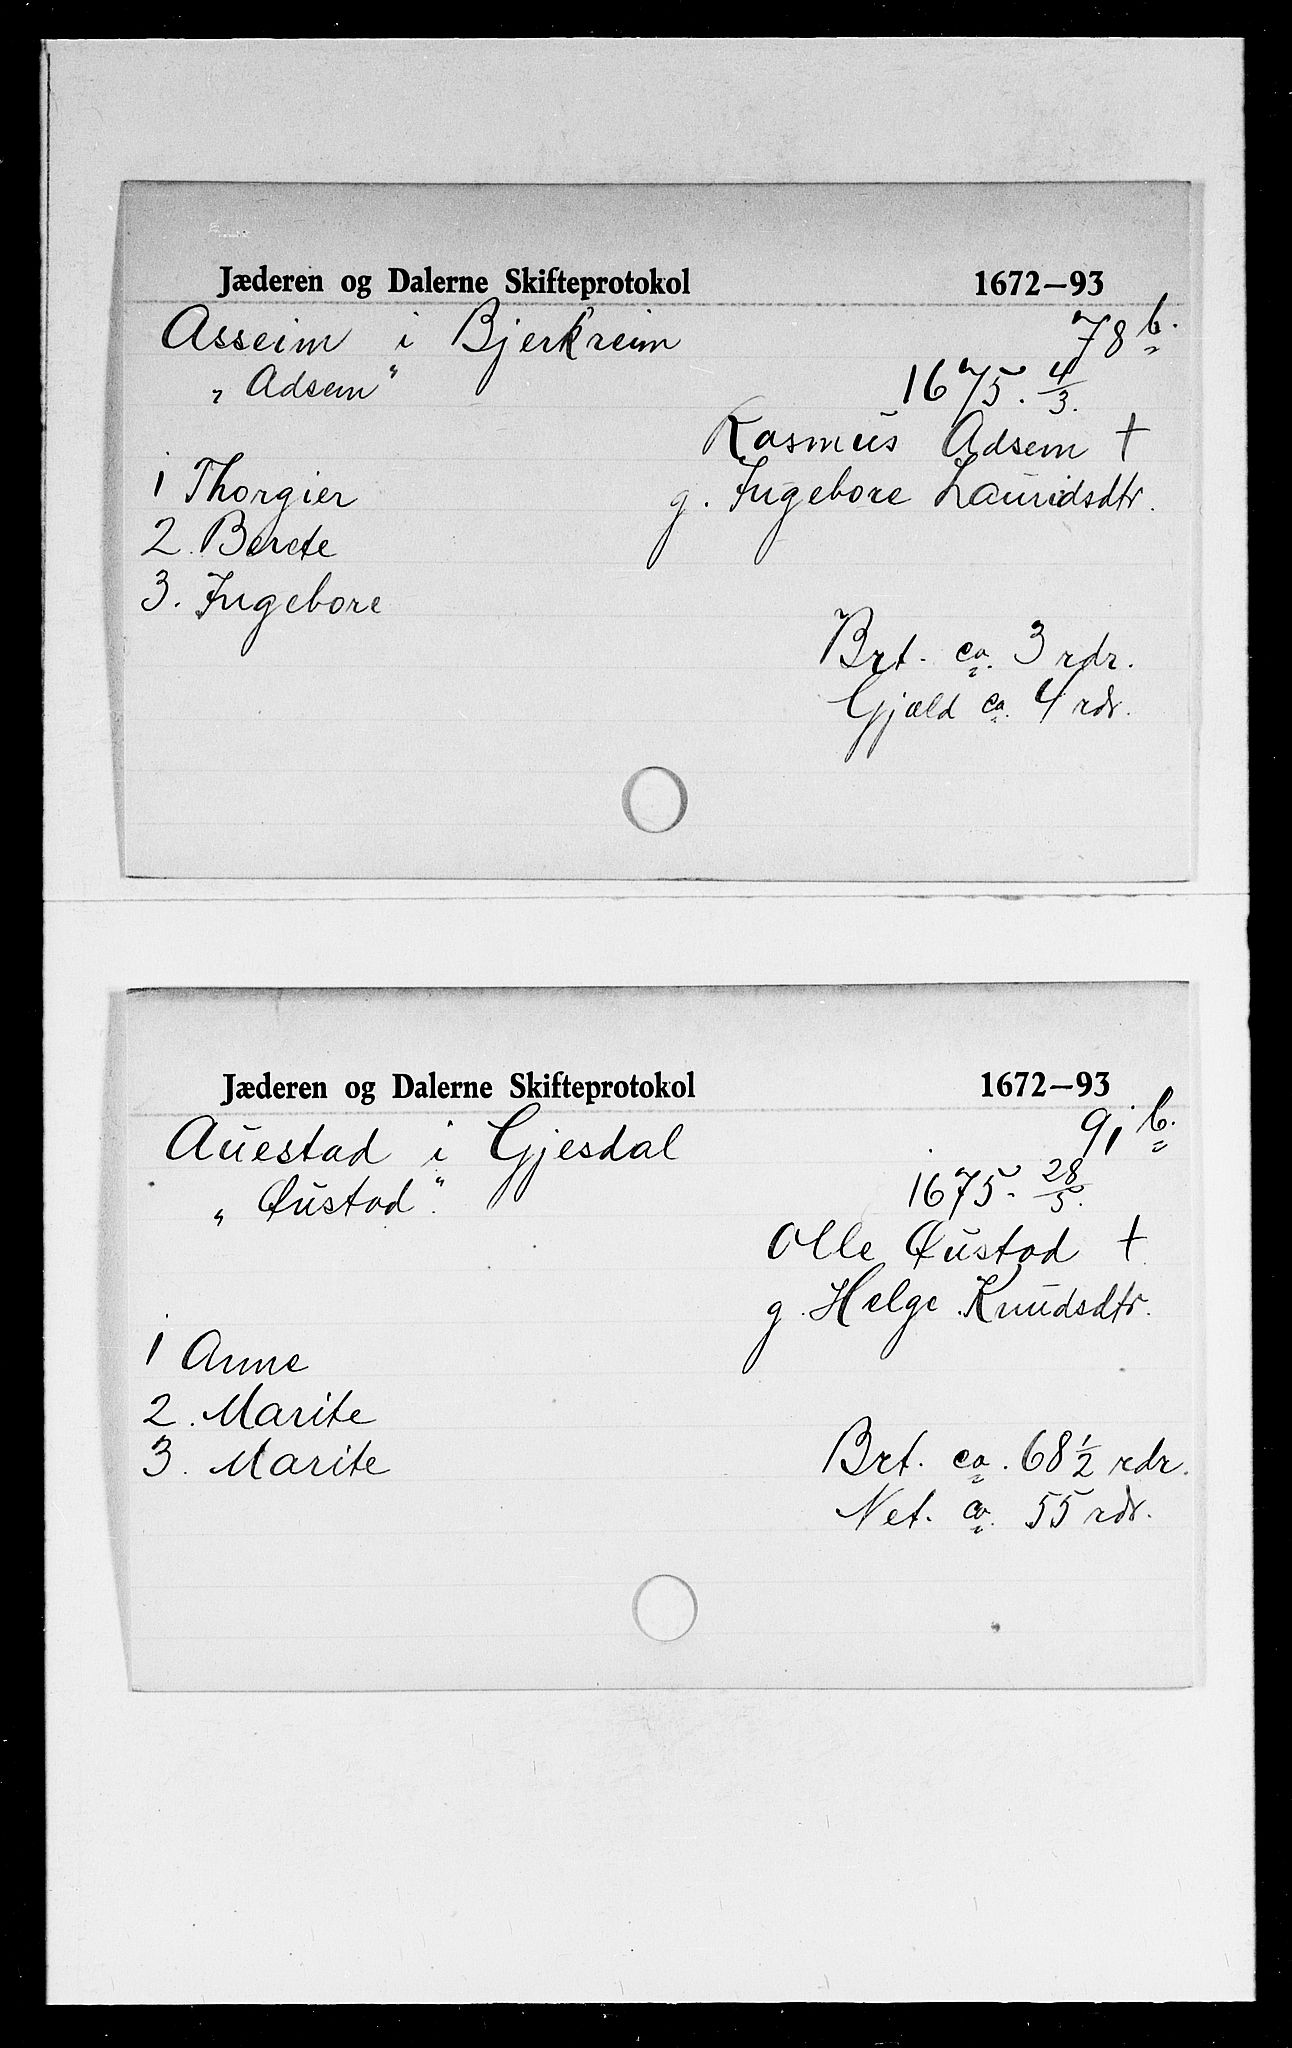 Jæderen og Dalerne Skifteprotokol 1672–93
Asseim i Bjerkreim 78 b.
„Adsem" 1675. 4/3.
Rasmus Adsem †
1 Thorgier g. Ingebore Lauridsdtr.
2. Berete
3. Ingebore
Brt. ca. 3 rdr.
Gjæld ca. 4 rdr.
Jæderen og Dalerne Skifteprotokol 1672–93
Auestad i Gjesdal 91 b.
„Øustad". 1675. 28/5.
Olle Øustad †
g. Helge Knudsdtr.
1 Anne
2. Marite
3. Marite Brt. ca. 68 1/2 rdr.
Net. ca. 55 rdr.